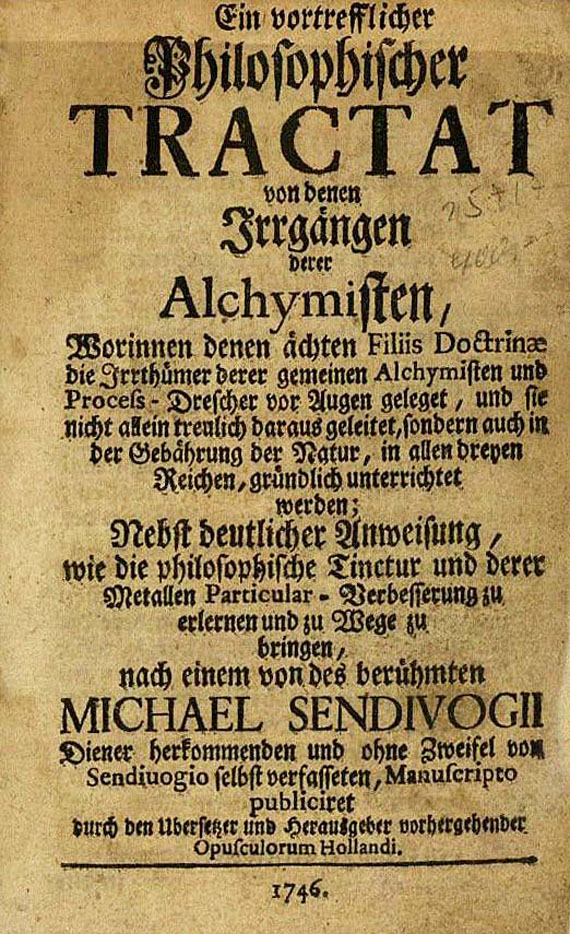 Ein vortrefflicher
Philosophischer
TRACTAT
von denen
Irrgängen
derer
Alchymisten,
Worinnen denen ächten Filiis Doctrinæ
die Irrthümer derer gemeinen Alchymisten und
Process-Drescher vor Augen geleget, und sie
nicht allein treulich daraus geleitet, sondern auch in
der Gebährung der Natur, in allen dreyen
Reichen, gründlich unterrichtet
werden;
Nebst deutlicher Anweisung,
wie die philosophische Tinctur und derer
Metallen Particular-Verbesserung zu
erlernen und zu Wege zu
bringen,
nach einem von des berühmten
MICHAEL SENDIVOGII
Diener herkommenden und ohne Zweifel von
Sendivogio selbst verfasseten, Manuscripto
publiciret
durch den Ubersetzer und Herausgeber vorhergehender
Opusculorum Hollandi.
1746.